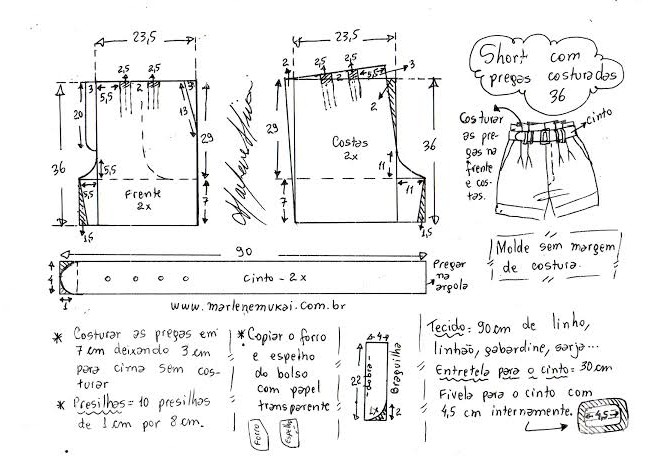 23,5
2,5
2,5
3
5,5
2
3
13
20
36
29
5,5
5,5
Frente
2x
7
1,5
23,5
2
2,5
2,5
2
3,5
3
2
29
Costas
2x
36
11
11
7
1,5
Short com
pregas costuradas
36
Costurar
as pre-
gas na
frente
e cos-
tas.
cinto
Molde sem margem
de costura.
90
4
1
Cinto - 2x
Pregar
na
argola
www.marlenemukai.com.br
* Costurar as pregas em
7 cm deixando 3 cm
para cima sem cos-
turar
* Presilhas = 10 presilhas
de 1 cm por 8 cm.
* Copiar o forro
e espelho
do bolso
com papel
transparente
Forro
Espelho
4
22
dobra
1x
2
Braguilha
Tecido: 90 cm de linho,
linhão, gabardine, sarja...
Entretela para o cinto: 30 cm
Fivela para o cinto com
4,5 cm internamente.
4,5